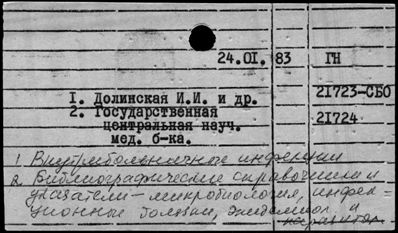 24.01.83 ГН
I. Долинская И.И. и др. 21723-СБО
2. Государственная 21724
центральная науч.
мед. б-ка.
1. Внутрибольничные инфекции
2. Библиографические справочники и
указатели - микробиология, инфек-
ционные болезни, эпидемиол. и
паразитол.